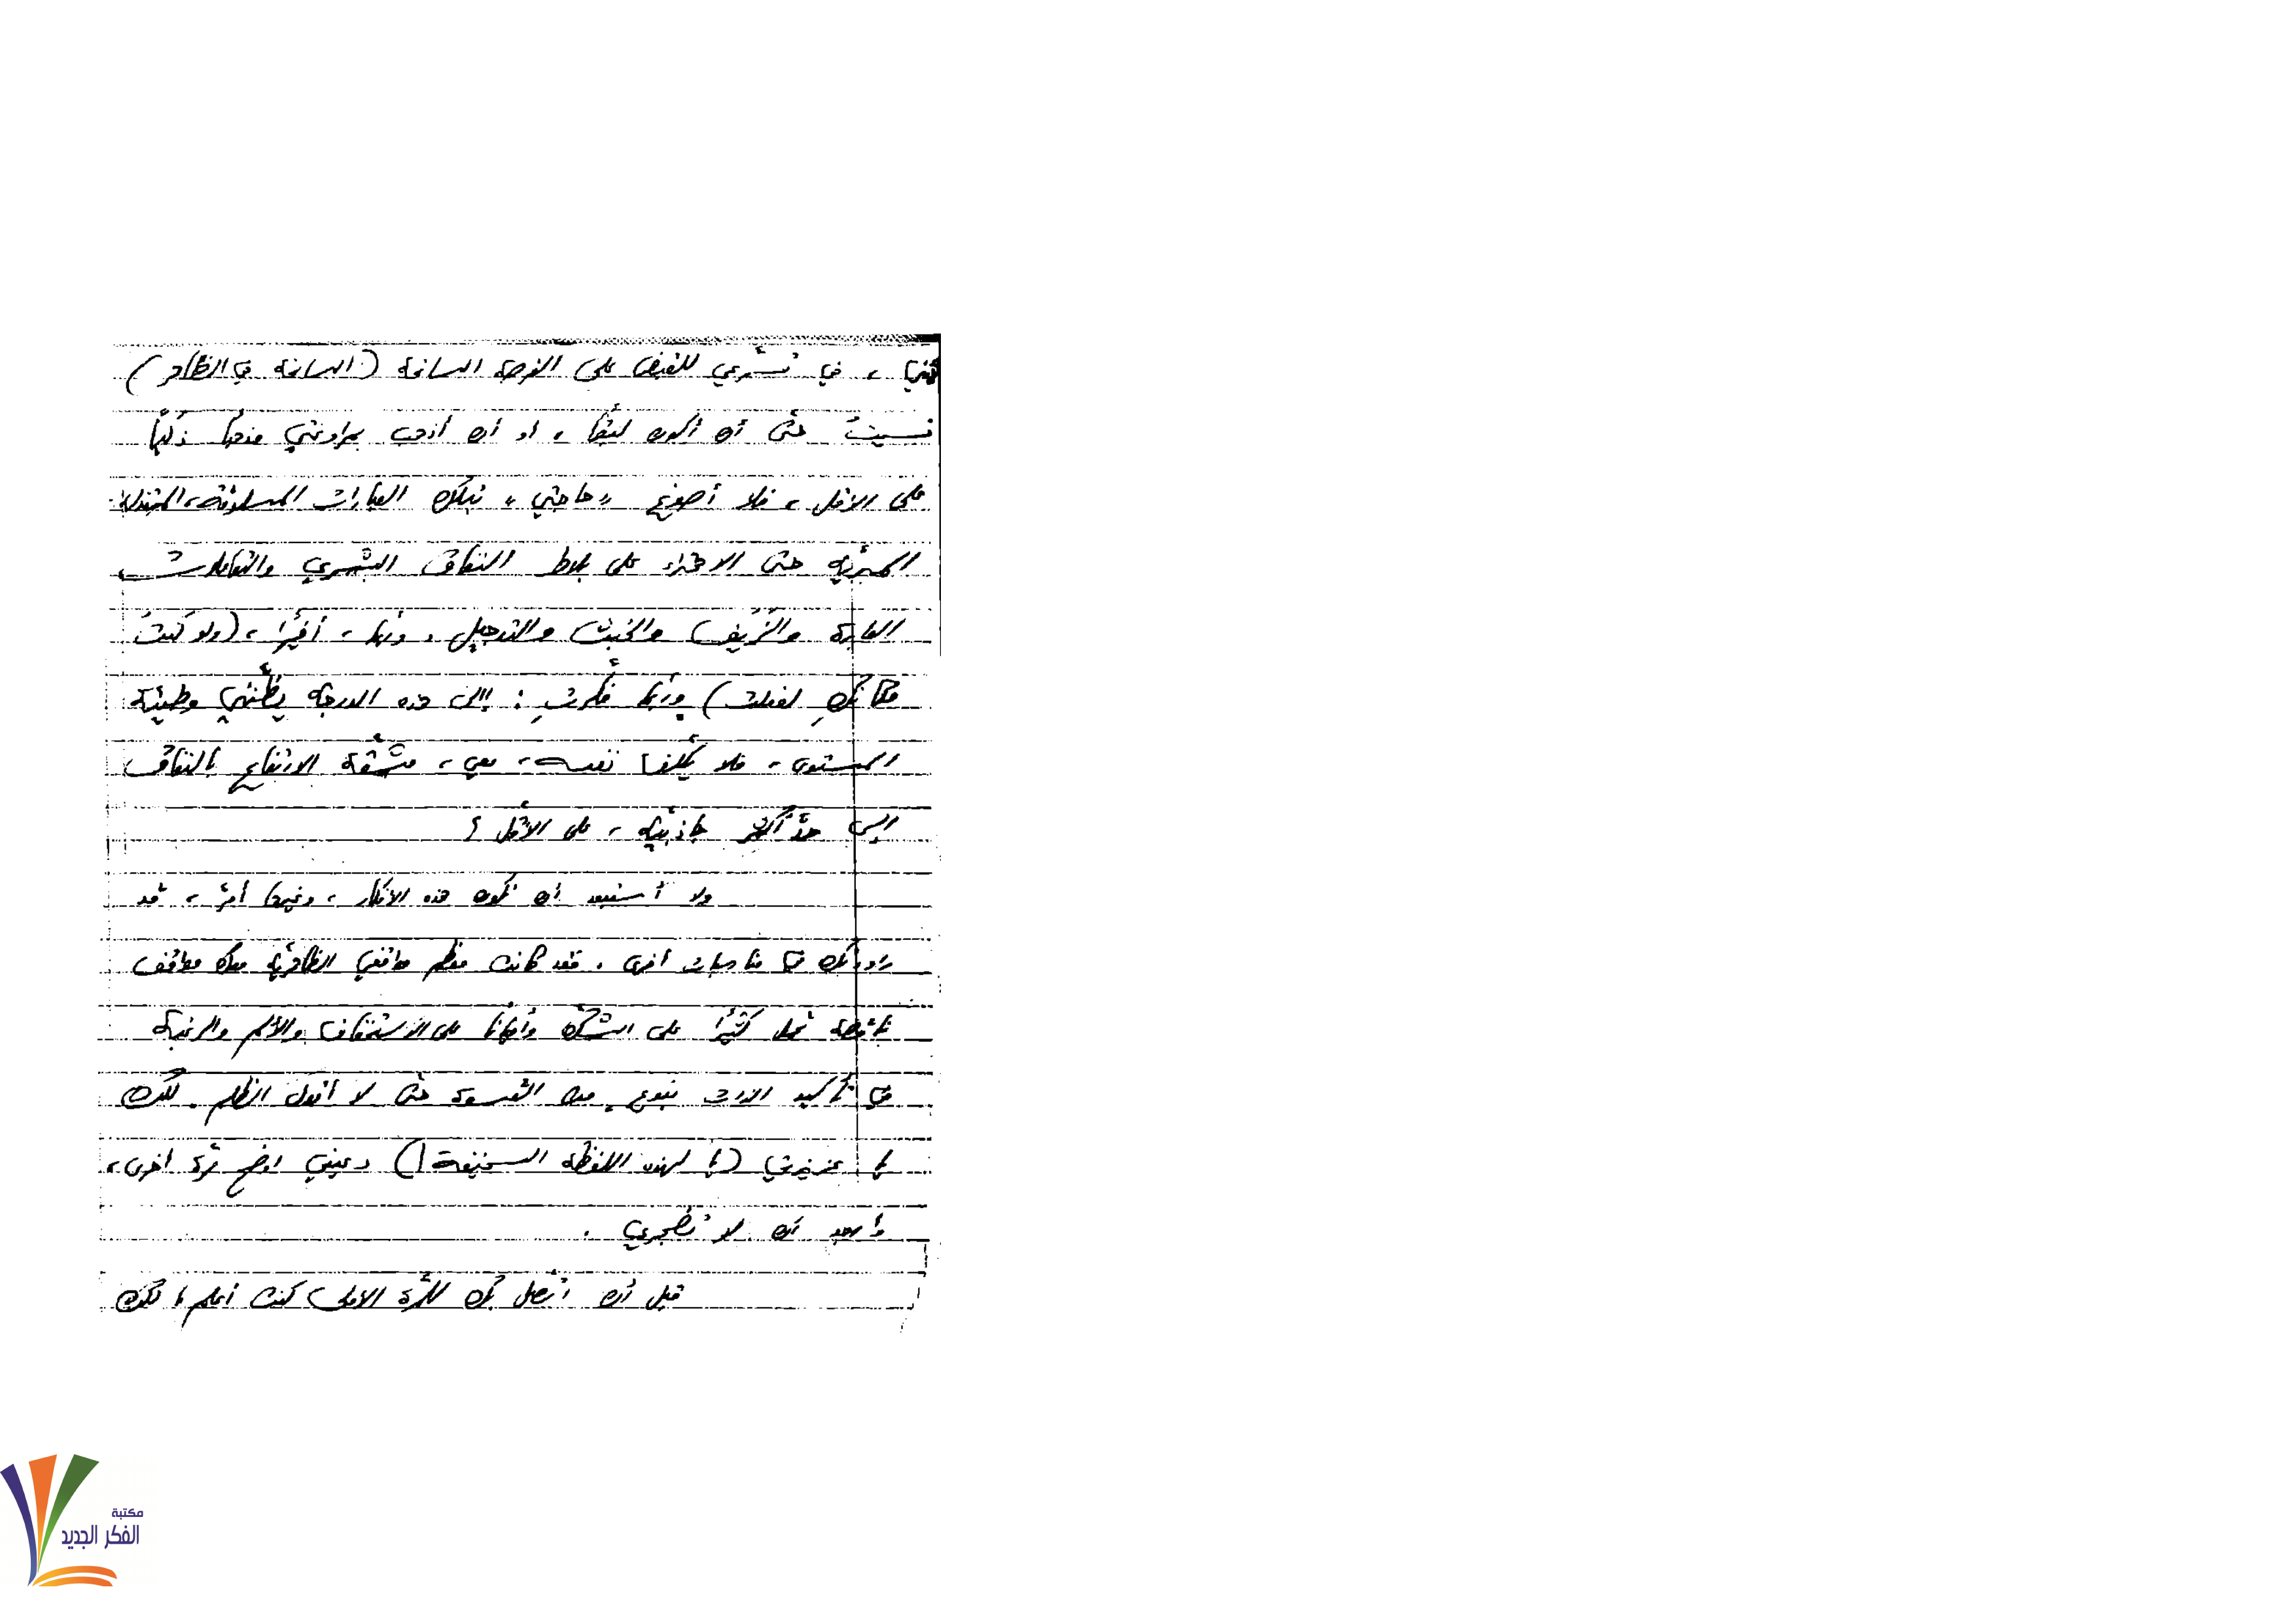 أنني ، في تسرعي للقبض على الفرصة السانحة (السانحة في الظاهر)
نسيتُ حتى أن أكون لبقًا ، او أن أذهب بمراوغتي مذهبًا ذكيًا
على الاقل ، فلا أصوغ «حاجتي» بتلك العبارات المسلوقة، المبتذلة
المهترئة حتى الاهتراء على بلاط النفاق البشري والتعاملات
العابرة والزيف والخبث والتدجيل . وربما ، أخيرًا ، (ولو كنتُ
مكانكِ لفعلت) وربما فكرتِ : إلى هذه الدرجة يظنني وطيئة
المستوى ، فلا يكلف نفسه ، معي ، مشقة الارتفاع بالنفاق
الى حدّ أكثر جاذبية ، على الأقل ؟
ولا أستبعد أن تكون هذه الافكار ، وغيرها أمرّ ، قد
راودتك في مناسبات أخرى . فقد كانت معظم مواقفي الظاهرية معك مواقف
ناقصة تحمل كثيرًا على الشك وأحيانًا على الاستخفاف والألم والرغبة
في تأكيد الذات بنوع من القسوة حتى لا أقول الظلم . لكن
يا عزيزتي (يا لهذه اللفظة السخيفة!) دعيني اوضح مرة أخرى ،
وأعد أن لا تضجري .
قبل أن أتصل بك للمرة الاولى كنت أعلم ، لكن
مكتبة
الفكر الجديد